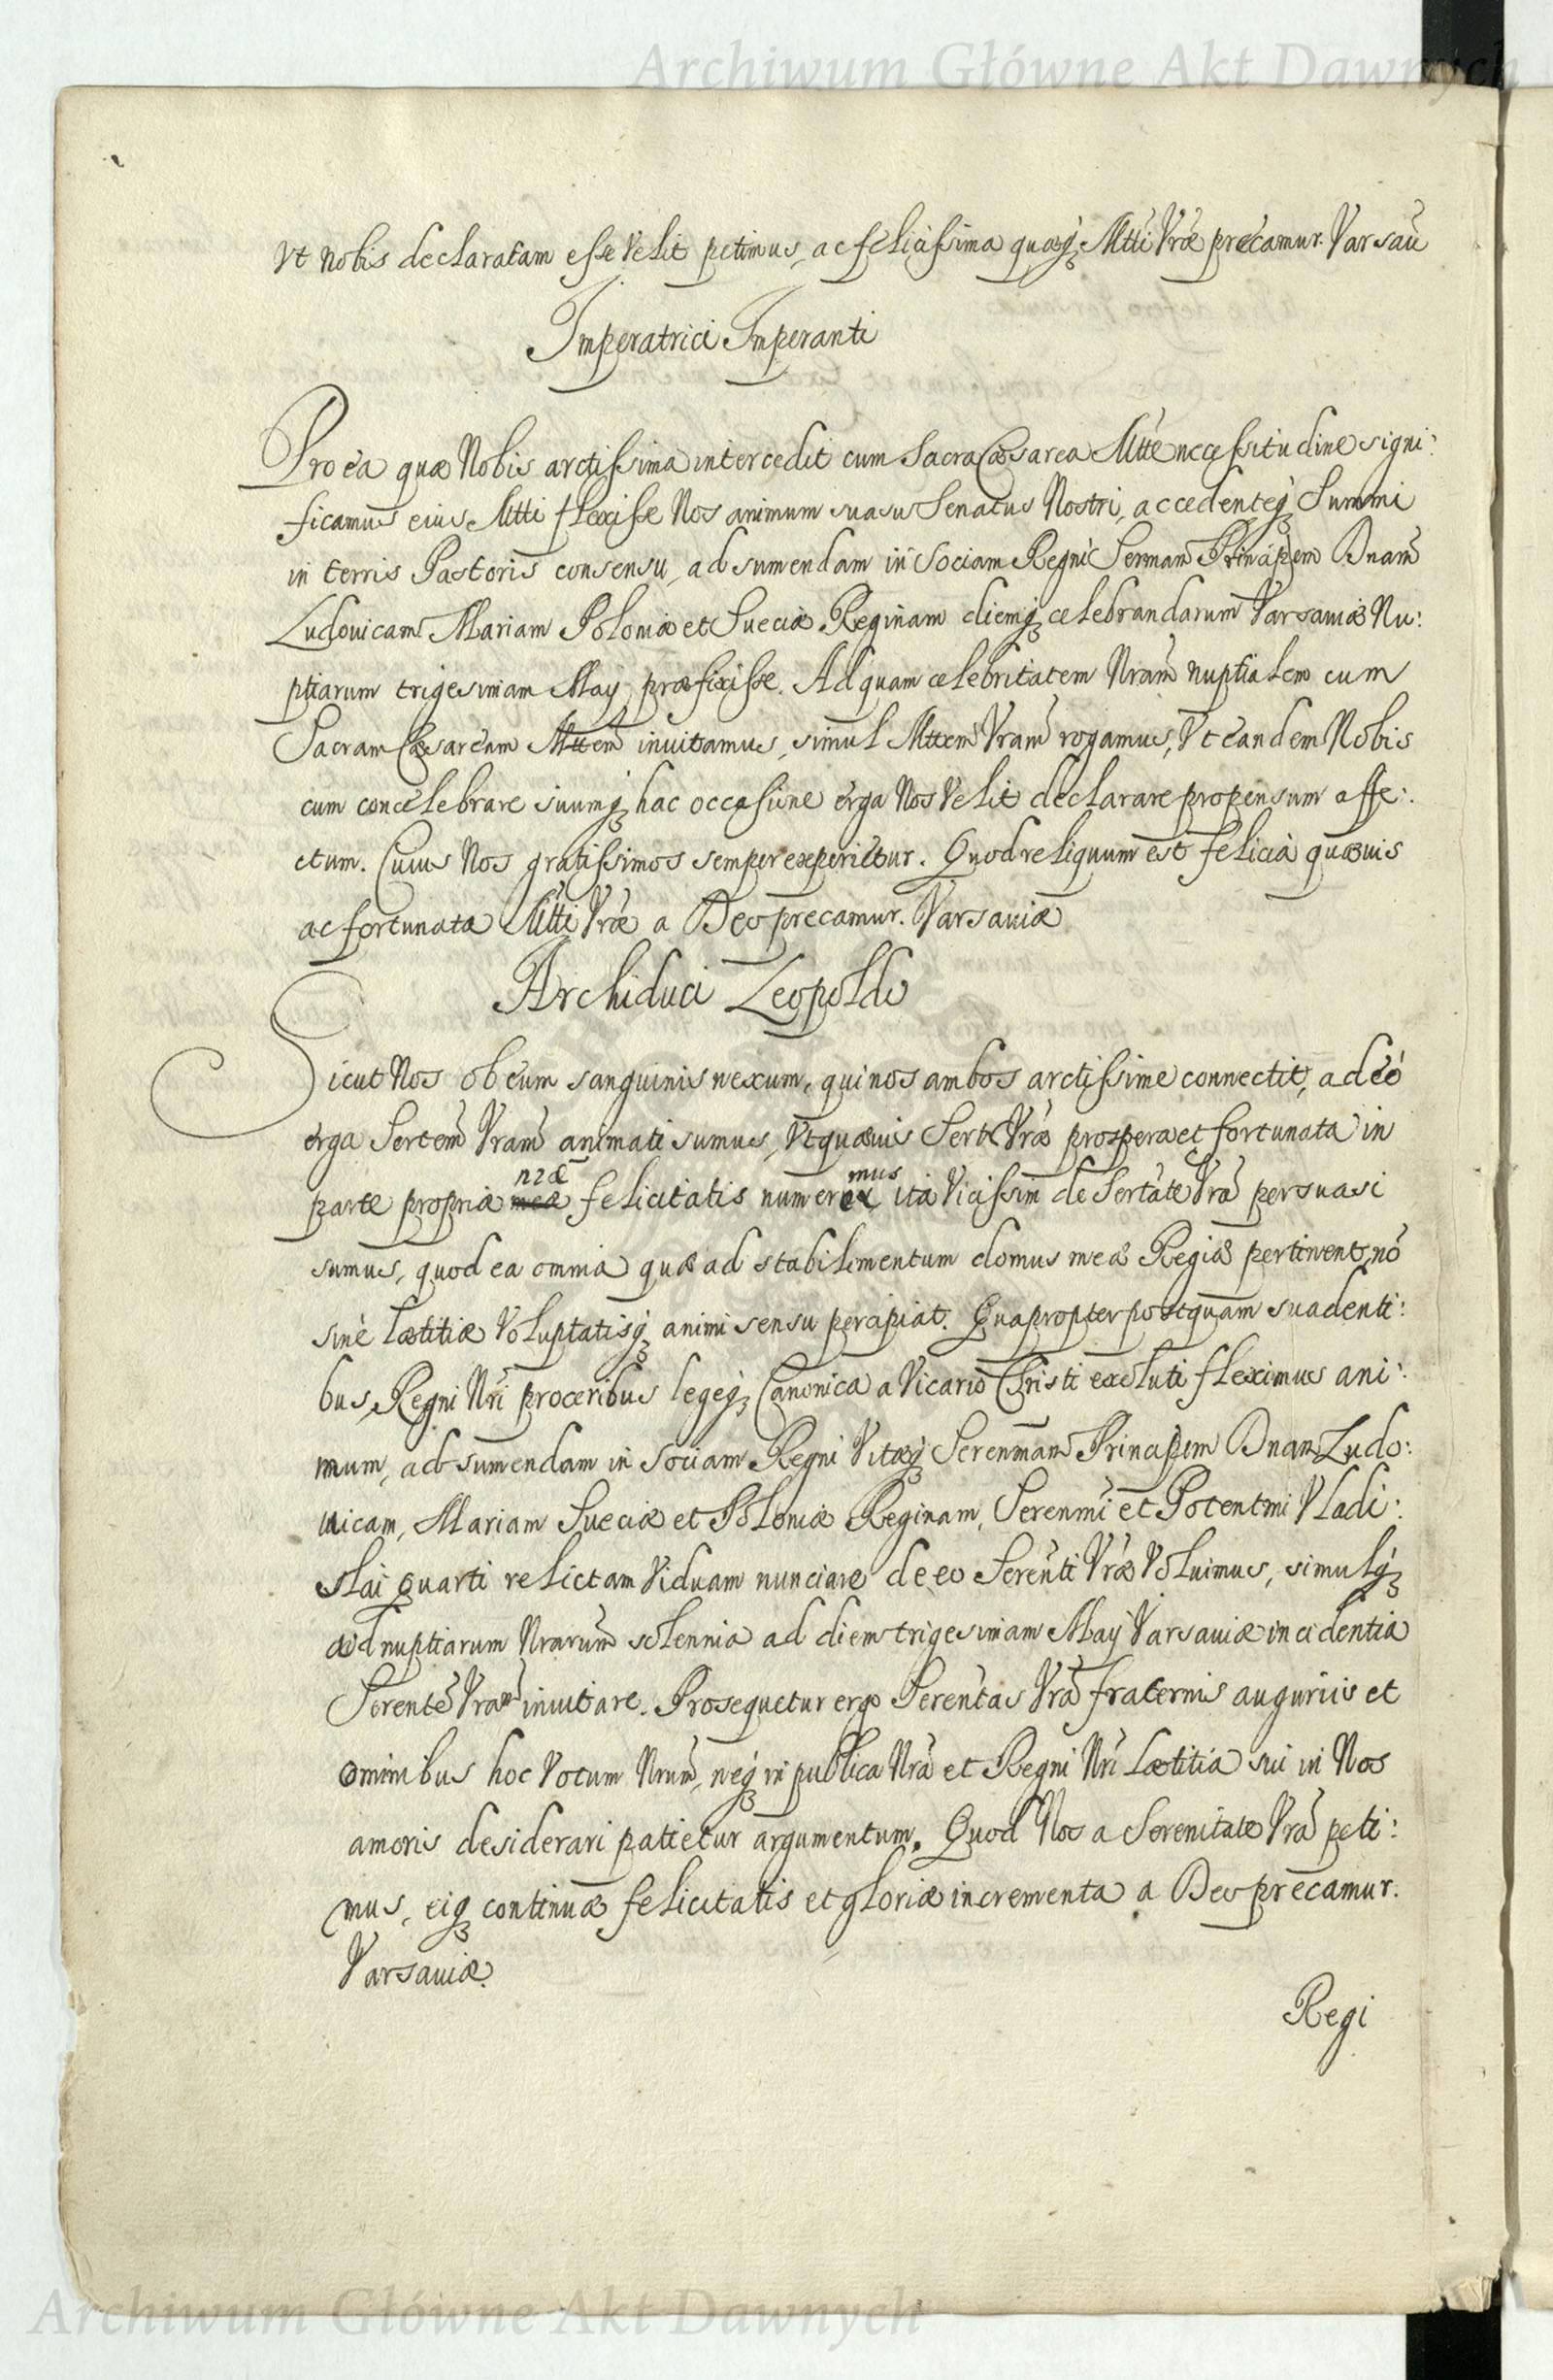 Archiwum Główne Akt Dawnych
Vt Nobis declaratam esse Velit petimus, ac felicissima quaeq3 Mtti Vrae precamur. Varsau
Imperatrici Imperanti
Pro ea quae Nobis arctissima intercedit cum Sacra Caesarea Mtte necessitudine signi:
ficamus eius Mtti flexisse Nos animum suasu Senatus Nostri, accedenteq3 Summi
in terris Pastoris consensu, ad sumendam in Sociam Regni Sermam Principem Dnam
Ludouicam Mariam Poloniae et Sueciae Reginam diemq3 celebrandarum Varsauiae Nu:
ptiarum trigesimam May praefixisse. Ad quam celebritatem Nram nuptialem cum
Sacram Caesaream Mttem inuitamus, simul Mttem Vram rogamus, Vt eandem Nobis
cum concelebrare suumq3 hac occasione erga Nos Velit declarare propensum affe:
ctum. Cuius Nos gratissimos semper experietur. Quod reliquum est felicia quaeuis
ac fortunata Mtti Vrae a Deo precamur. Varsauiae
Archiduci Leopoldo
Sicut Nos ob eum sanguinis nexum, qui nos ambos arctissime connectit, adeo
erga Sertem Vram animati sumus, Vt quaeuis Serti Vrae prospera et fortunata in
nrae mus
parte propriae meae felicitatis numer ita Vicissim de Sertate Vra persuasi
sumus, quod ea omnia quae ad stabilimentum domus meae Regiae pertinent, nō
sine laetitiae Voluptatisq3 animi sensu percipiat. Quapropter postquam suadenti:
bus Regni Nri proceribus legeq3 Canonica a Vicario Christi exoluti fleximus ani:
mum, ad sumendam in Sociam Regni Vitaeq3 Serenmam Principem Dnam Ludo:
uicam, Mariam Sueciae et Poloniae Reginam, Serenmi et Potentmi Vladi:
slai quarti relictam Viduam nunciare de eo Serenti Vrae Voluimus, simulq3
ad nuptiarum Nrarum solennia ad diem trigesimam May Varsauiae incidentia
Serentē Vram inuitare. Prosequetur ergo Serentas Vra fraternis auguriis et
ominibus hoc Votum Nrum, neq3 in publica Nra et Regni Nri laetitia sui in Nos
amoris desiderari patietur argumentum. Quod Nos a Serenitate Vra peti:
mus, eiq3 continuae felicitatis et gloriae incrementa a Deo precamur.
Varsauiae.
Regi
Archiwum Główne Akt Dawnych